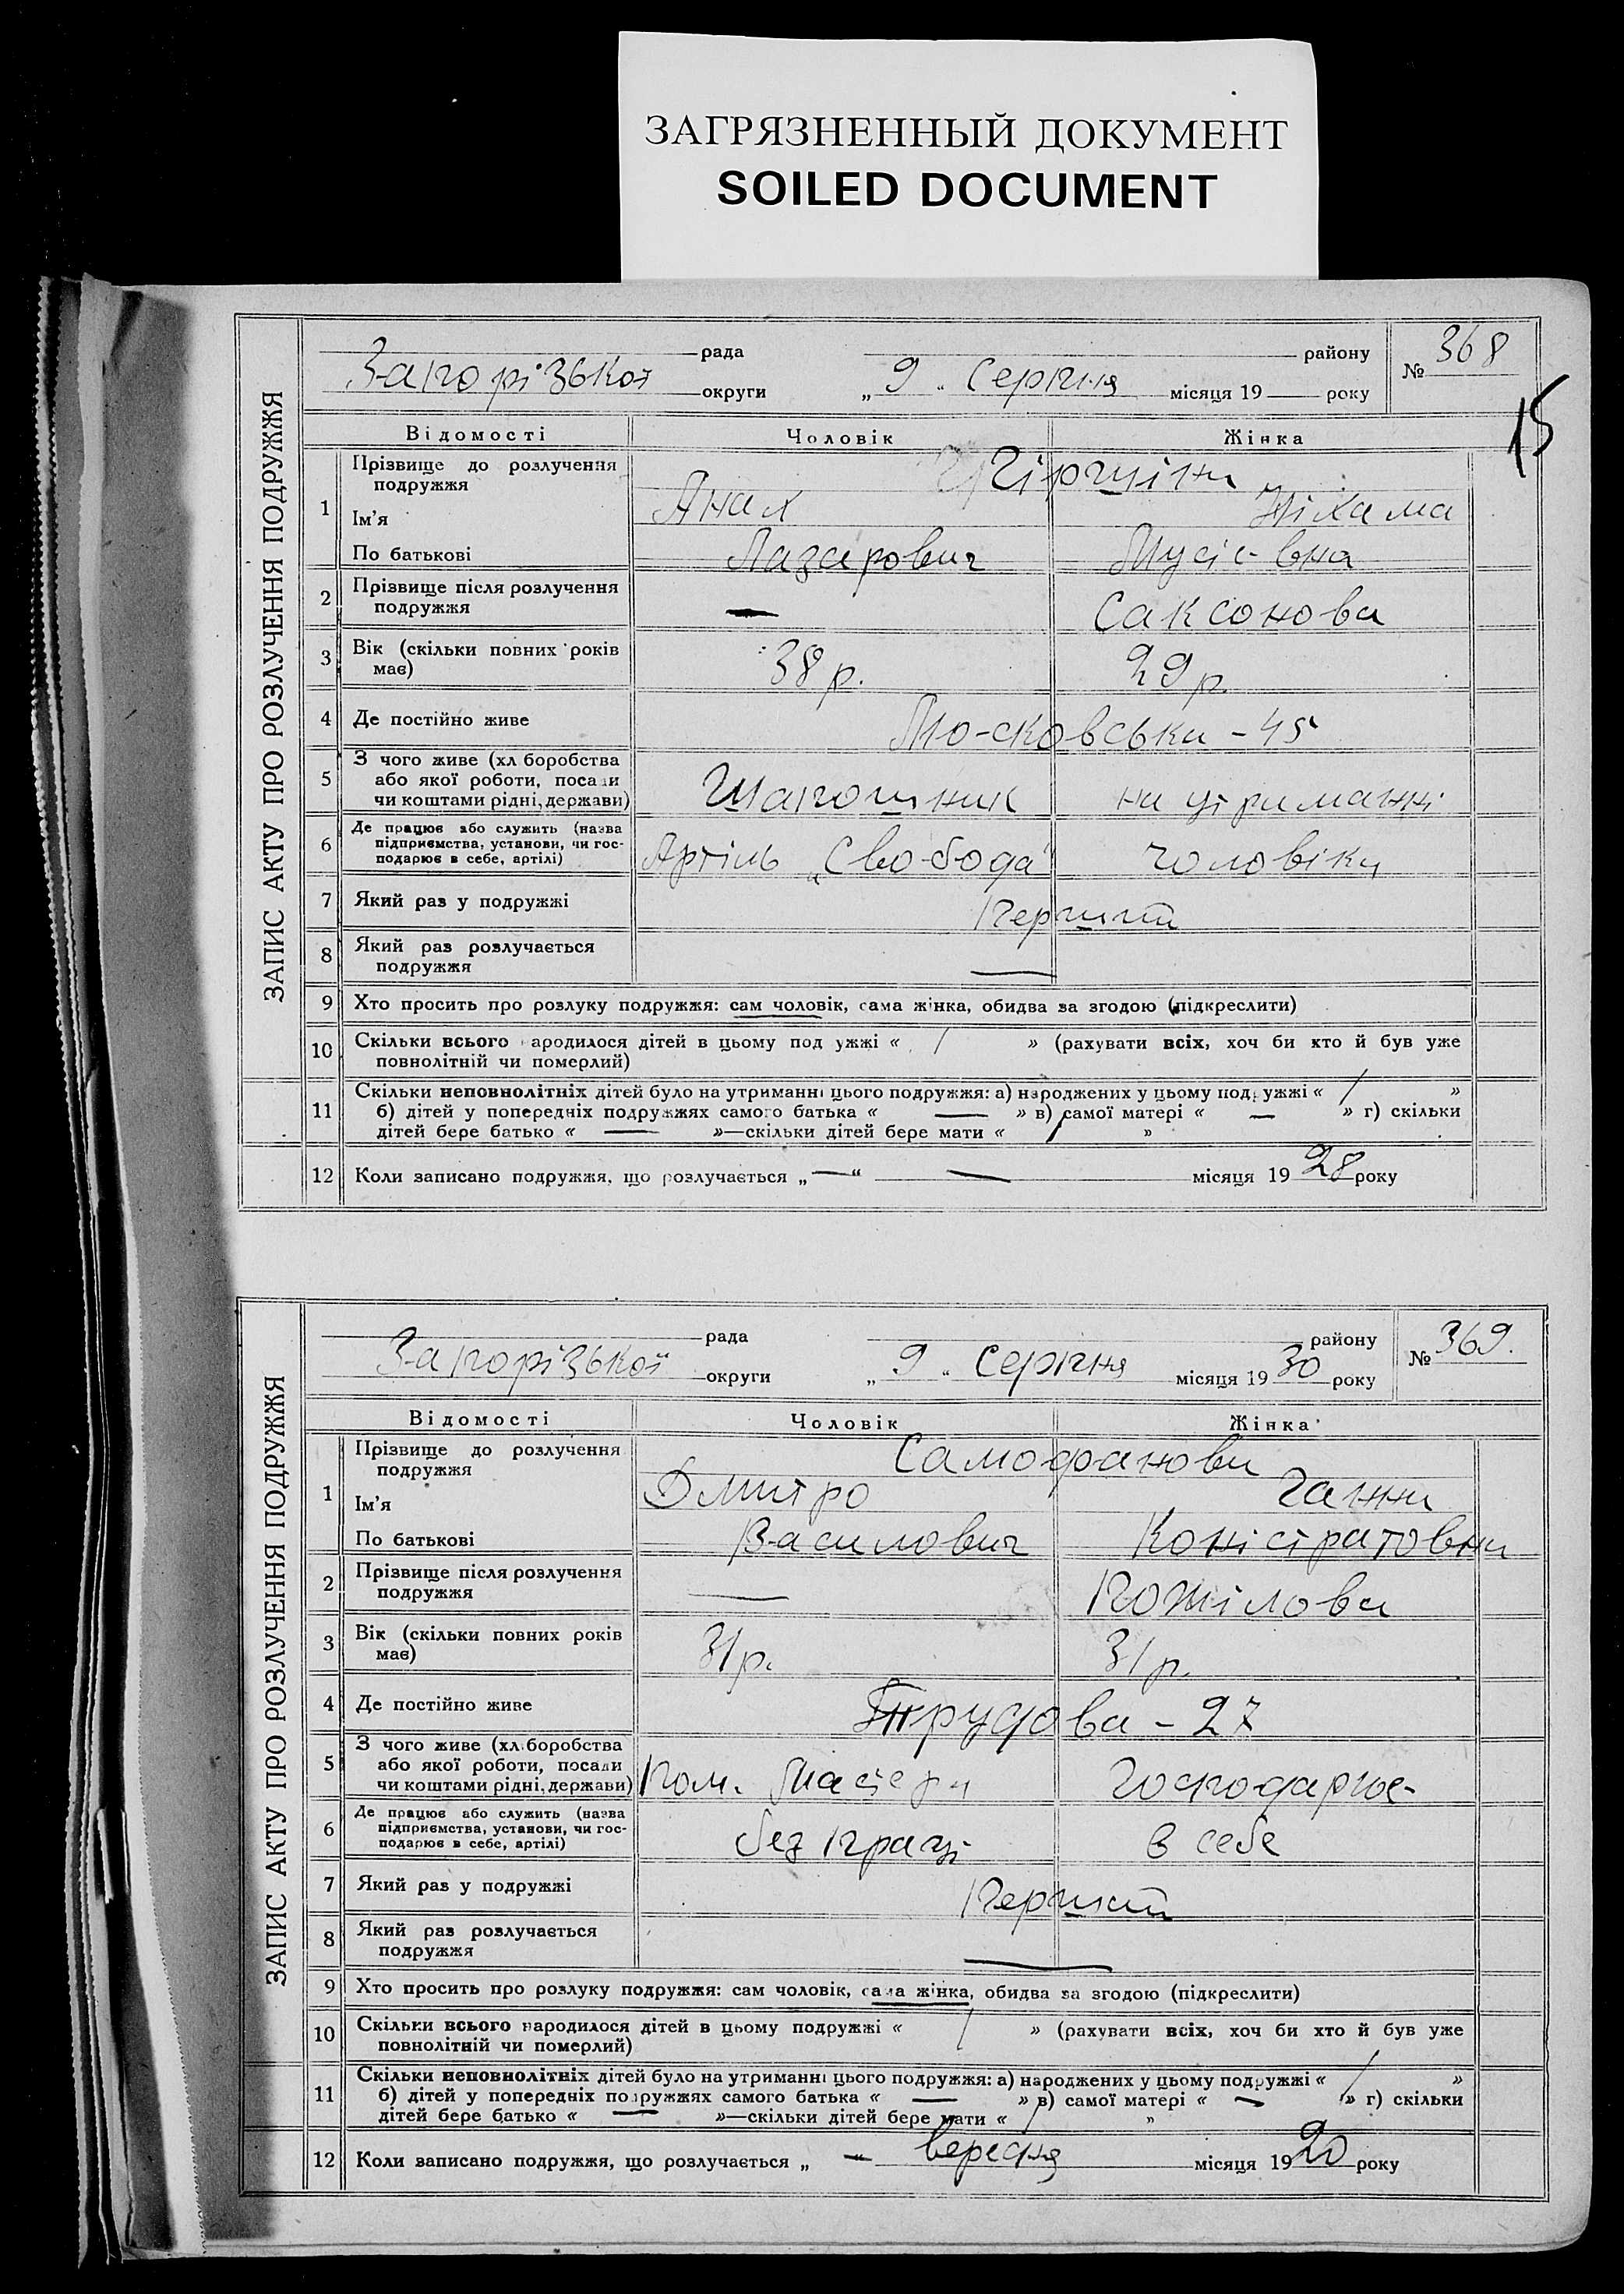 ЗАГРЯЗНЕННЫЙ ДОКУМЕНТ
SOILED DOCUMENT
ЗАПИС АКТУ ПРО РОЗЛУЧЕННЯ ПОДРУЖЖЯ
рада району
Запорізької округи „ 9 “ Серпня місяця 19 року
№ 368
15
Відомості Чоловік Жінка
1 Прізвище до розлучення подружжя
Ім'я
По батькові Лазарович Мусієвна
2 Прізвище після розлучення подружжя — Саксонова
3 Вік (скільки повних років має) 38 р. 29 р.
4 Де постійно живе Московська - 45
5 З чого живе (хл боробства
або якої роботи, посади
чи коштами рідні, держави) Шапошник на утриманні
6 Де працює або служить (назва
підприємства, установи, чи гос-
подарює в себе, артілі) Артіль „Свобода" чоловіка
7 Який раз у подружжі Перший
8 Який раз розлучається
подружжя —
9 Хто просить про розлуку подружжя: сам чоловік, сама жінка, обидва за згодою (підкреслити)
10 Скільки всього народилося дітей в цьому подружжі « / » (рахувати всіх, хоч би хто й був уже
повнолітній чи померлий)
11 Скільки неповнолітніх дітей було на утриманні цього подружжя: а) народжених у цьому подружжі « / »
б) дітей у попередніх подружжях самого батька « — » в) самої матері « — » г) скільки
дітей бере батько « — »—скільки дітей бере мати « / »
12 Коли записано подружжя, що розлучається „—“ — місяця 19 28 року
ЗАПИС АКТУ ПРО РОЗЛУЧЕННЯ ПОДРУЖЖЯ
рада району
Запорізької округи „ 9 “ Серпня місяця 19 30 року
№ 369.
Відомості Чоловік Жінка
1 Прізвище до розлучення
подружжя Самофанови
Ім'я Дмитро Ганна
По батькові Василович
2 Прізвище після розлучення
подружжя — Пожілова
3 Вік (скільки повних років
має) 31 р. 31 р.
4 Де постійно живе Трудова - 27
5 З чого живе (хл.боробства
або якої роботи, посади
чи коштами рідні, держави) Пом. Мастера Господарює
6 Де працює або служить (назва
підприємства, установи, чи гос-
подарює в себе, артілі) без праці в себе
7 Який раз у подружжі Перший
8 Який раз розлучається
подружжя —
9 Хто просить про розлуку подружжя: сам чоловік, сама жінка, обидва за згодою (підкреслити)
10 Скільки всього народилося дітей в цьому подружжі « / » (рахувати всіх, хоч би хто й був уже
повнолітній чи померлий)
11 Скільки неповнолітніх дітей було на утриманні цього подружжя: а) народжених у цьому подружжі « / »
б) дітей у попередніх подружжях самого батька « — » в) самої матері « — » г) скільки
дітей бере батько « — »—скільки дітей бере мати « / »
12 Коли записано подружжя, що розлучається „ — вересня місяця 19 20 року